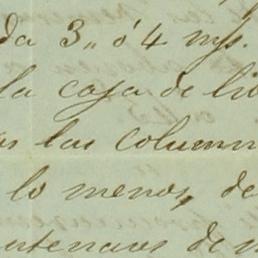 da 3,, ó 4 mss.
la caja de li
as las column
lo menos, de
ntenares de